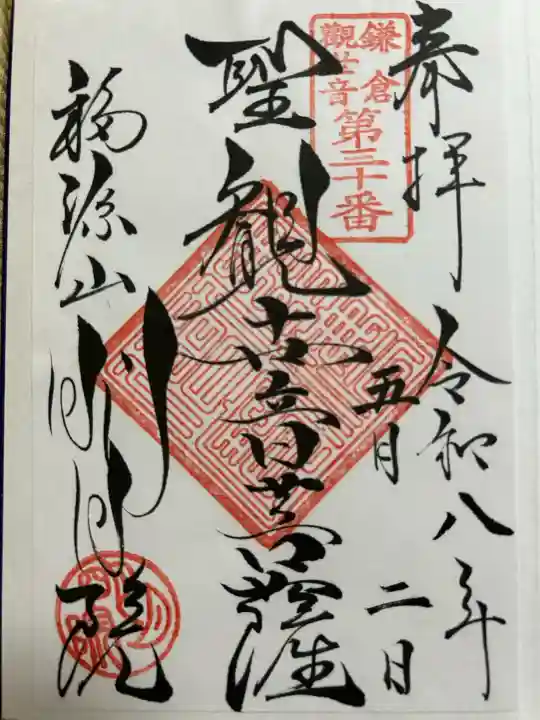 奉拝
令和八年
五月二日
鎌倉
観世音
第三十番
聖観世音菩薩
福源山
明月院